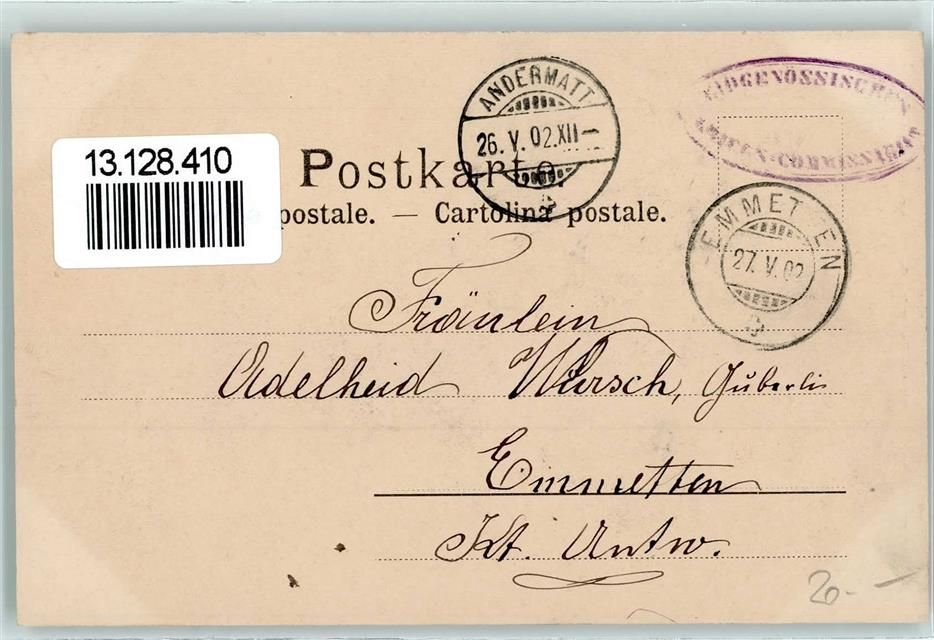 13.128.410
Postkarte.
postale. — Cartolina postale.
ANDERMATT
26. V. 02.XII–
EIDGENÖSSISCHES
COMMISSARIAT
EMMETTEN
27. V. 02
Fräulein
Adelheid Würsch, Guberlis
Emmetten
Kt. Untw.
20.-